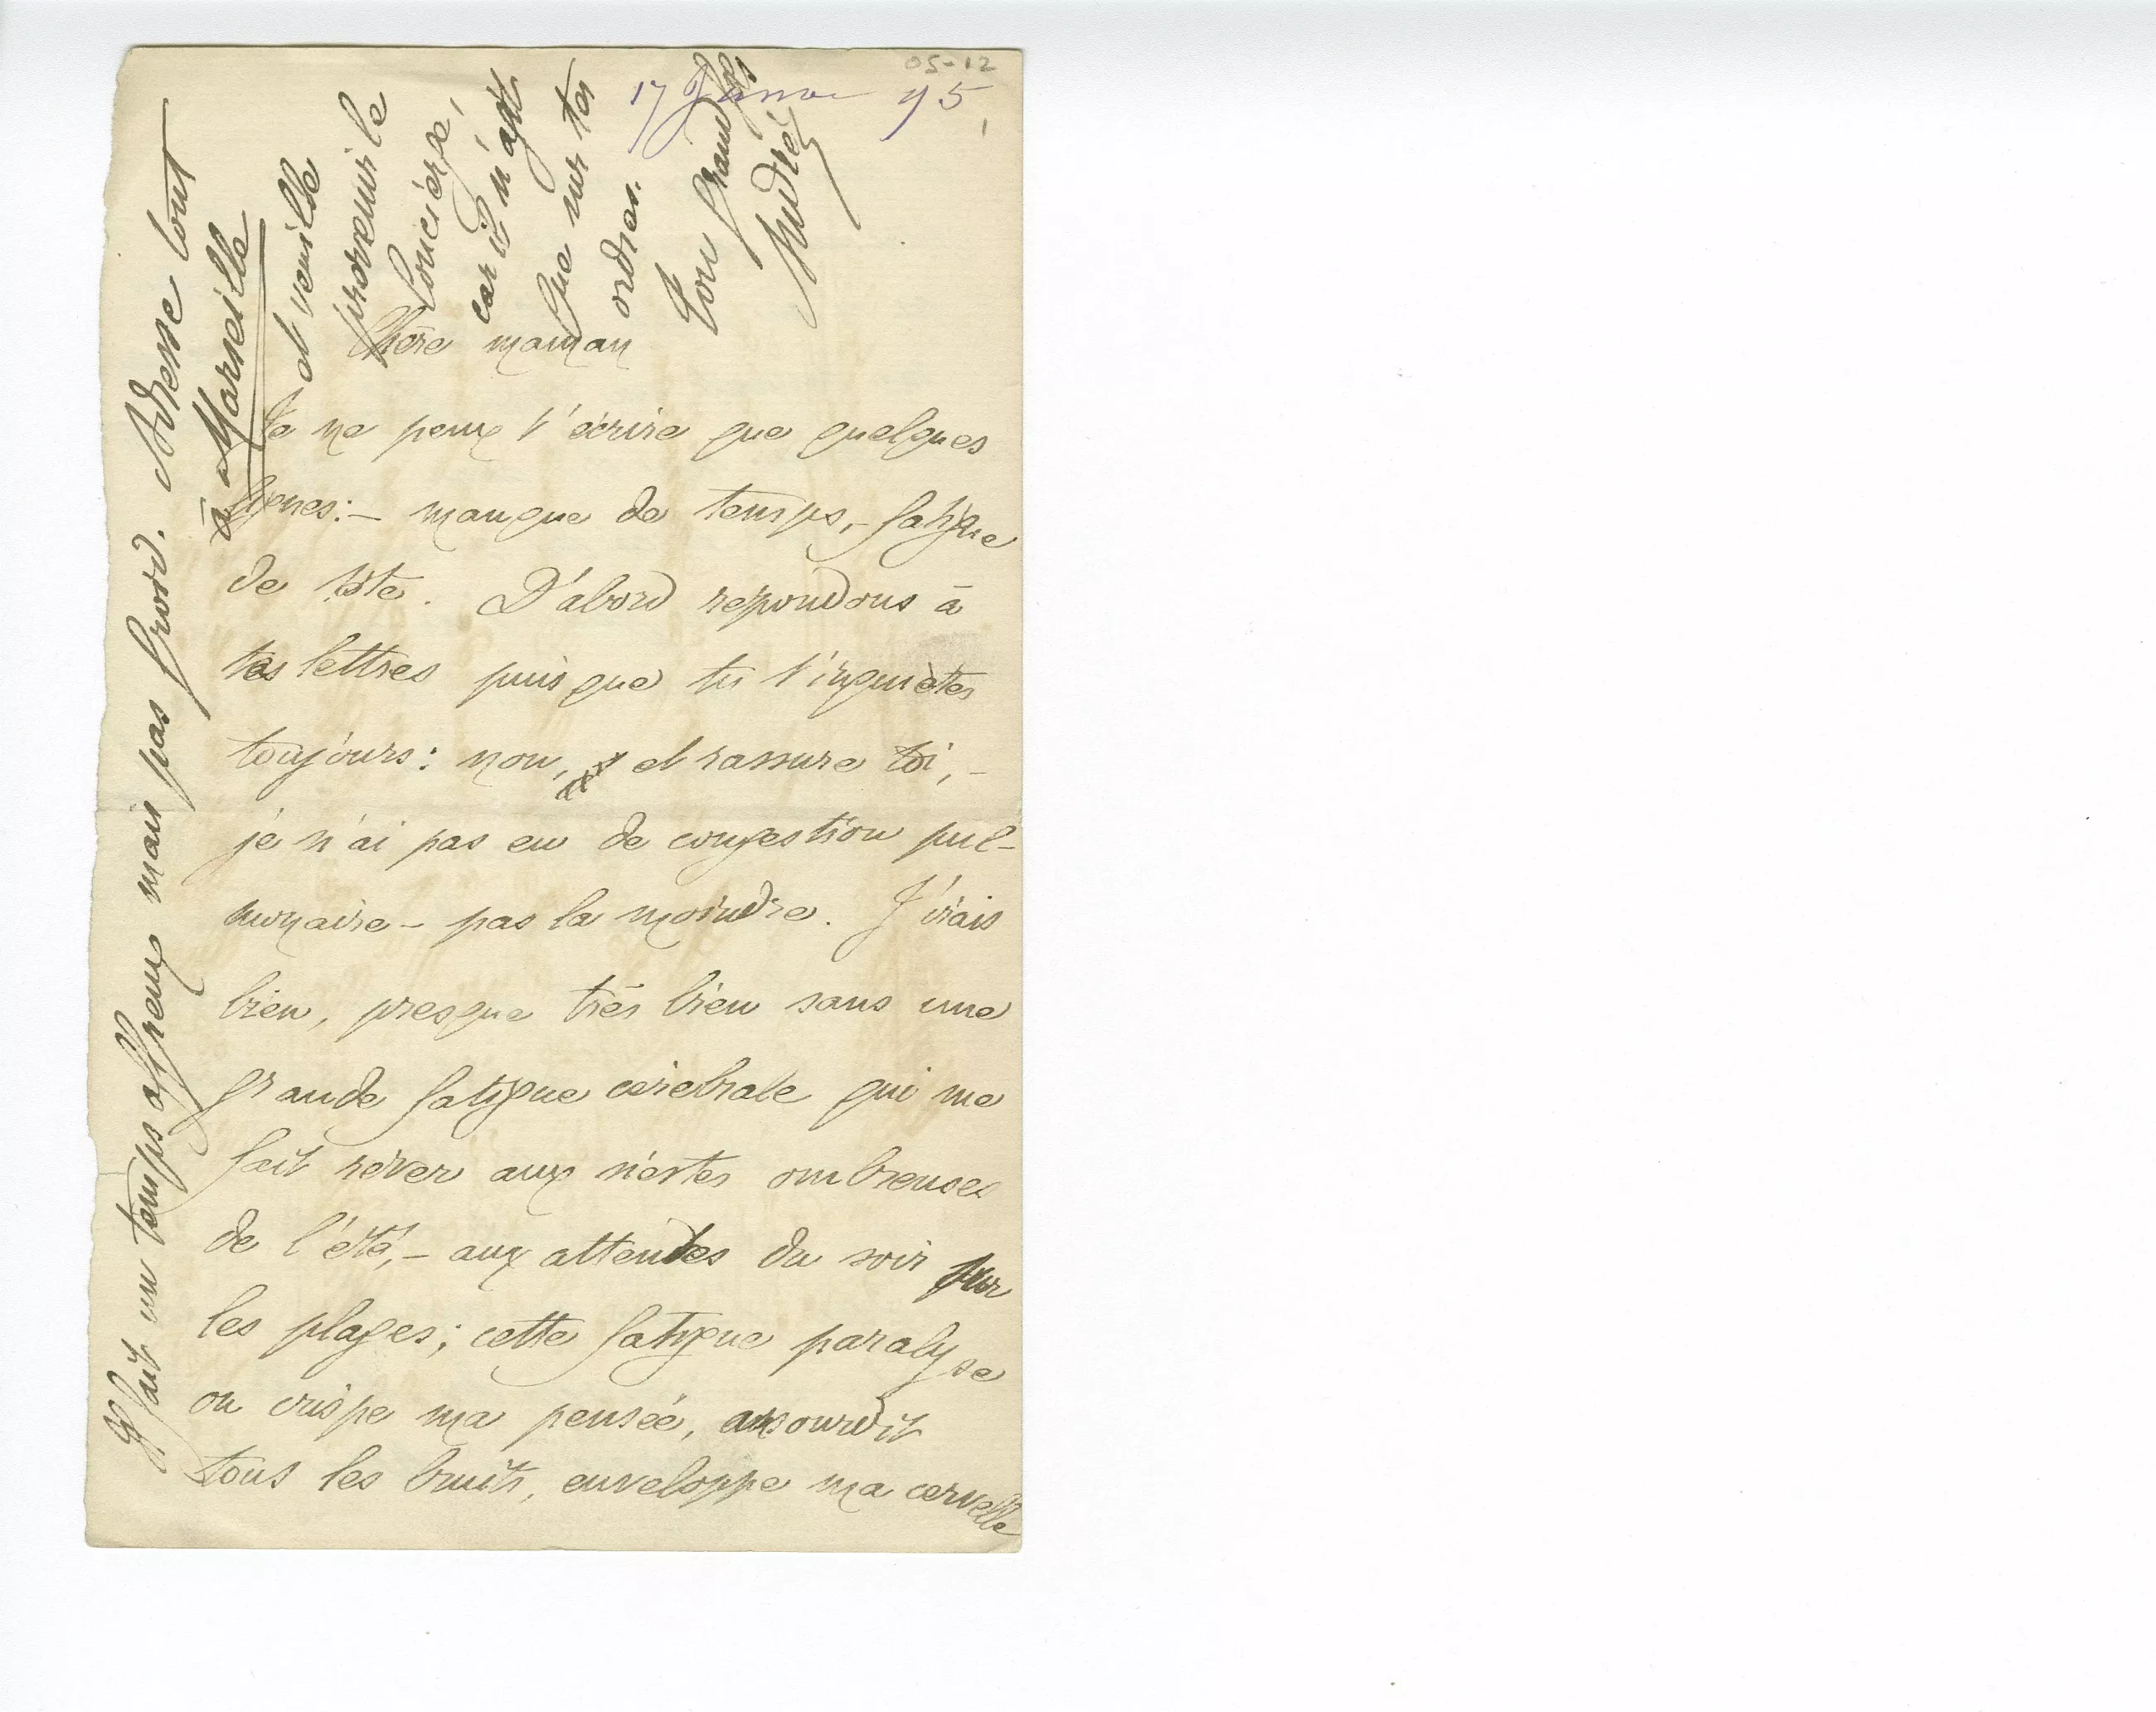 05-12
17 Janv 95
1
Chère maman
Je ne peux t'écrire que quelques
lignes: – manque de temps, – fatigue
de tête. D'abord repondons à
tes lettres puisque tu t'inquiètes
toujours: non, et rassure toi, –
je n'ai pas eu de congestion pul-
monaire – pas la moindre. J'irais
bien, presque très bien sans une
grande fatigue cérébrale qui me
fait rêver aux siestes ombreuses
de l'été, – aux attentes du soir sur
les plages; cette fatigue paralyse
ou crispe ma pensée, assourdit
tous les bruits, enveloppe ma cervelle
Il fait un temps affreux mais pas froid. Adresse tout
à Marseille
et veuille
prevenir le
concierge,
car il n'agit
que sur tes
ordres.
Ton grand fils
André